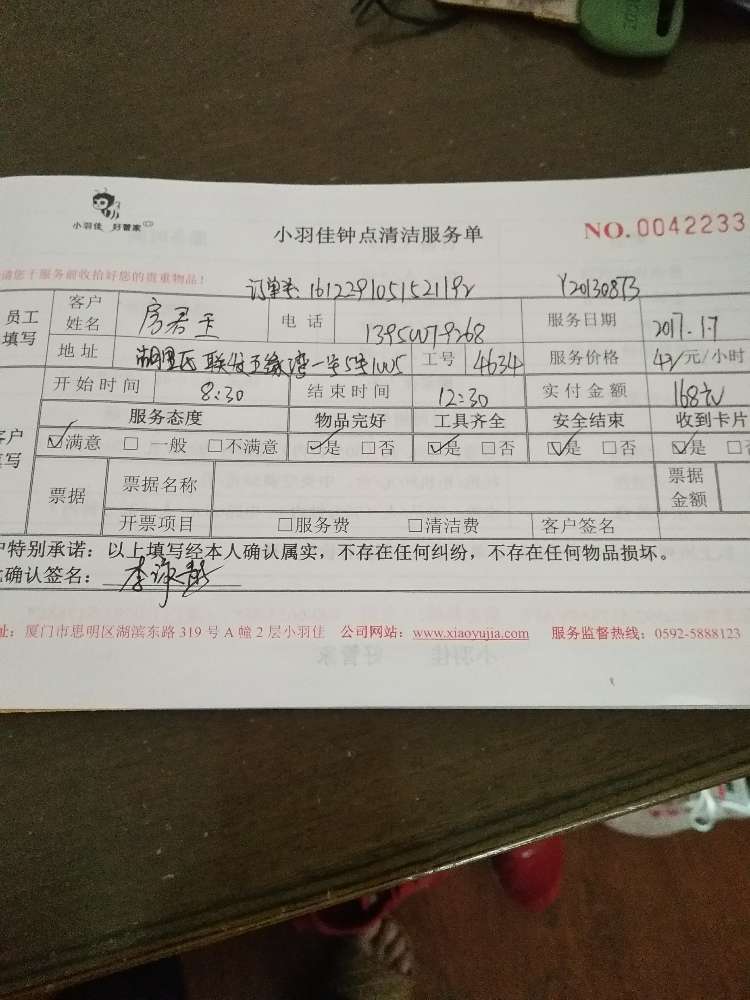 小羽佳 好管家
小羽佳钟点清洁服务单
NO.0042233
请您于服务前收拾好您的贵重物品!
订单号: Y201308T3
员工填写 客户姓名 房君玉 电话 服务日期 2017.1.7
地址 工号 4634 服务价格 42/元/小时
开始时间 8:30 结束时间 12:30 实付金额 168元
服务态度 物品完好 工具齐全 安全结束 收到卡片
☑满意 □一般 □不满意 ☑是 □否 ☑是 □否 ☑是 □否 ☑是 □
票据 票据名称 票据金额
开票项目 □服务费 □清洁费 客户签名
户特别承诺:以上填写经本人确认属实,不存在任何纠纷,不存在任何物品损坏。
确认签名:
址:厦门市思明区湖滨东路 319 号 A 幢 2 层小羽佳 公司网站:www.xiaoyujia.com 服务监督热线:0592-5888123